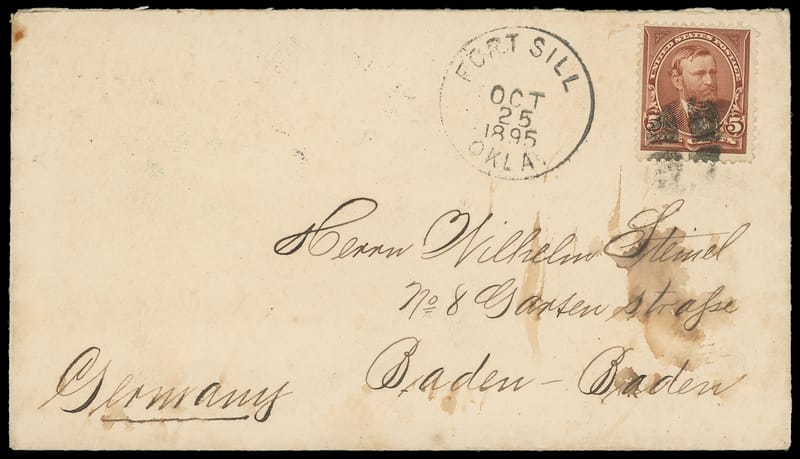 FORT SILL
OCT
25
1895
OKLA.
UNITED STATES POSTAGE
5 5
Herrn Wilhelm Steinel
No 8 Garten straße
Baden - Baden
Germany